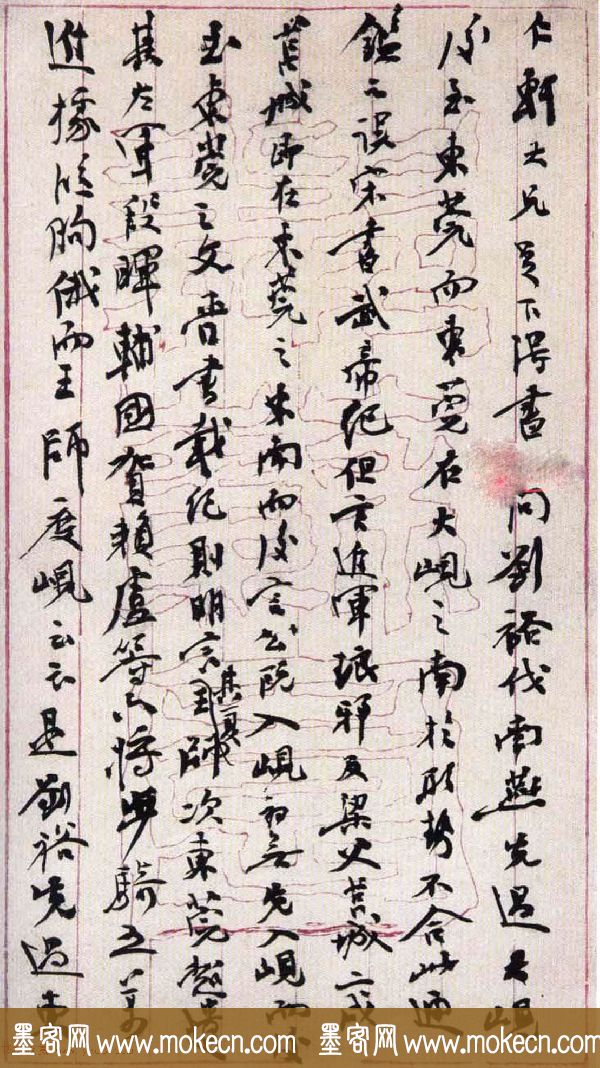 仁轩大兄足下得書 問劉裕伐南燕先過大峴
後至東莞而東莞在大峴之南於形勢不合此通
鑑之誤宋書武帝紀但言進軍琅邪及梁父莒城二戍
莒城即在東莞之東南而後言公既入峴初無先入峴而後
至東莞之文晉書載紀則明言王師次東莞超遣
其夏
其左軍段暉輔國賀賴盧等六將步騎五萬
進據臨朐俄而王師度峴云云是劉裕先過東
墨客网www.mokecn.com 墨客网www.mokecn.com